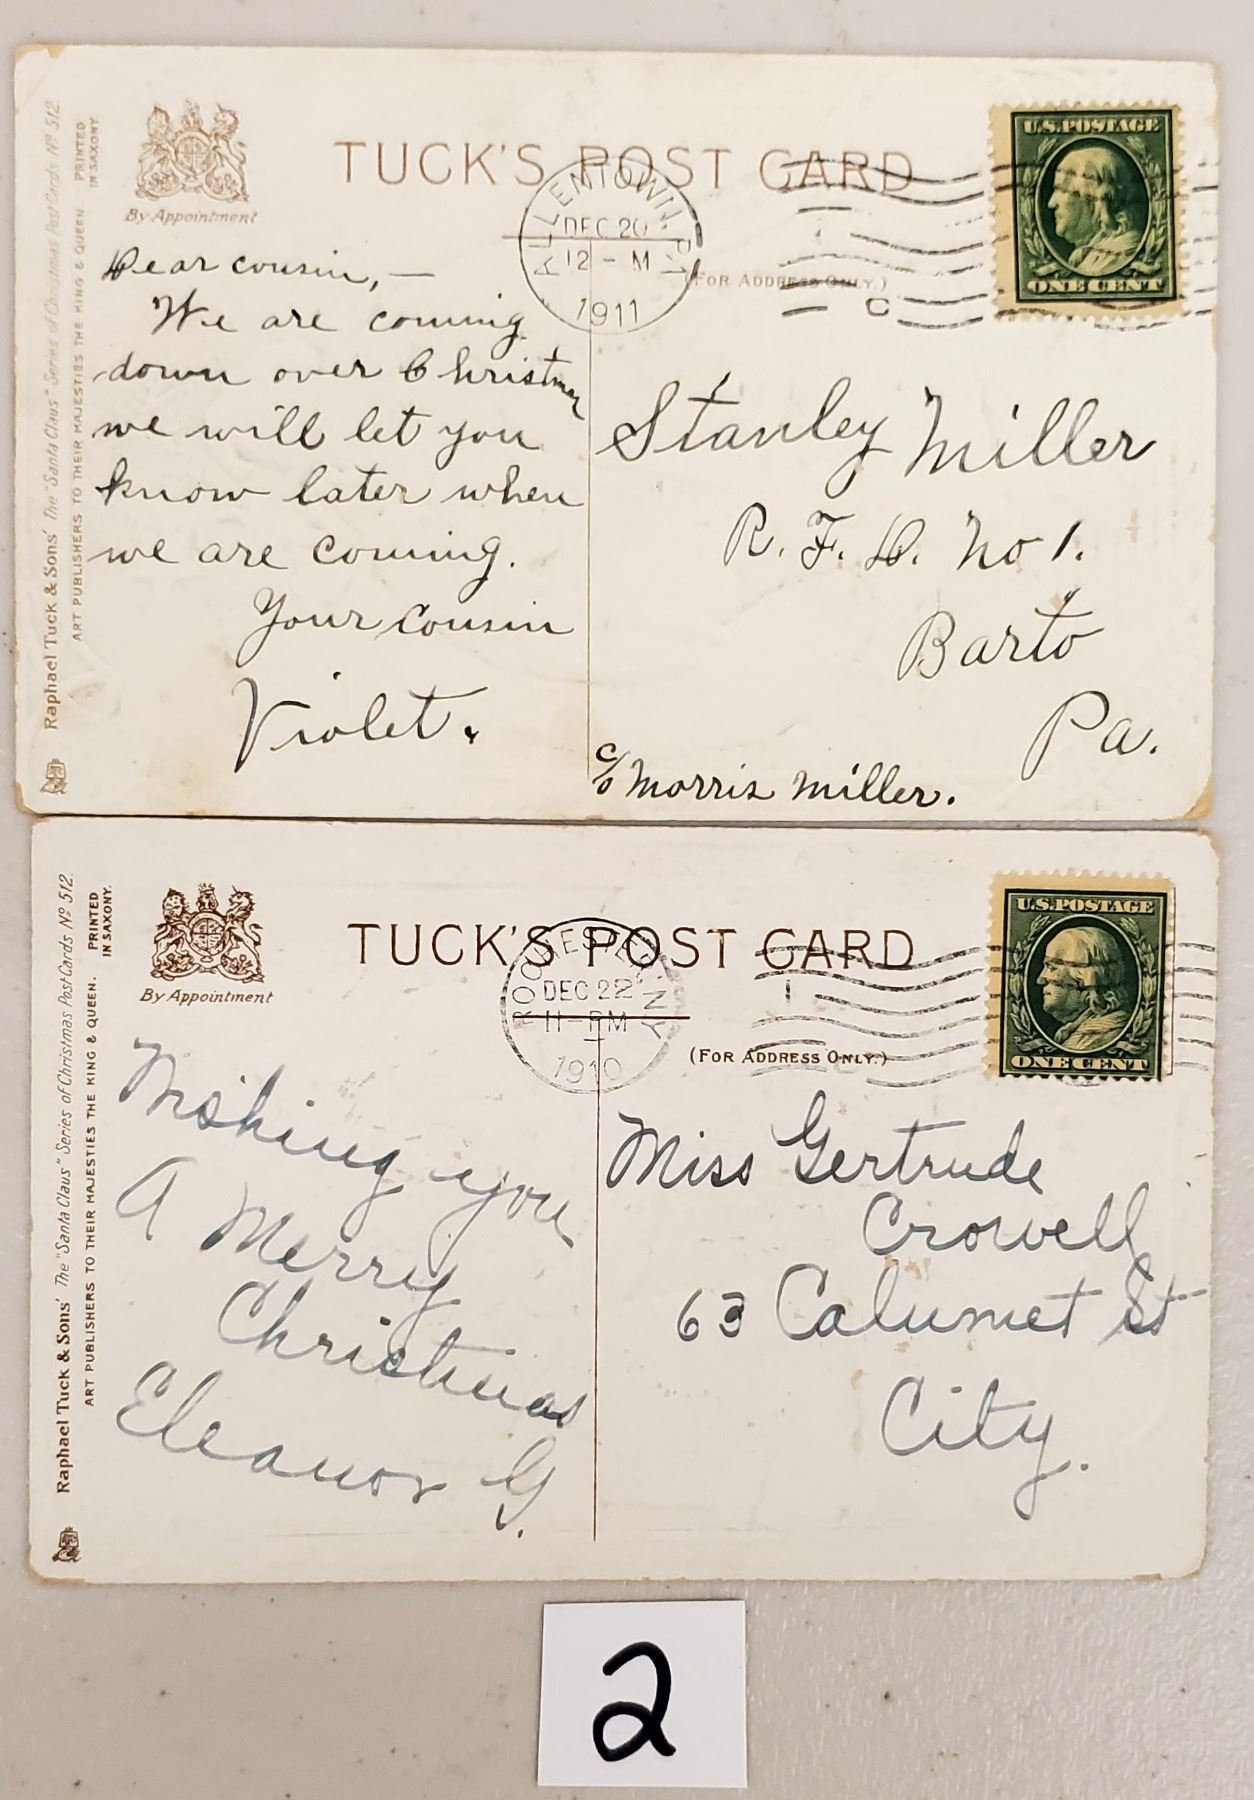 Raphael Tuck & Sons' The "Santa Claus" Series of Christmas Post Cards No 512
ART PUBLISHERS TO THEIR MAJESTIES THE KING & QUEEN
PRINTED
IN SAXONY.
By Appointment
TUCK'S POST CARD
ALLENTOWN, PA
DEC 20
12 - M
1911
(FOR ADDRESS ONLY.)
C
U.S. POSTAGE
ONE CENT
Dear cousin, —
We are coming
down over Christmas
we will let you
know later when
we are coming.
Your cousin
Violet.
Stanley Miller
R. F. D. No 1.
Barto
Pa.
c/o Morris Miller.
Raphael Tuck & Sons' The "Santa Claus" Series of Christmas Post Cards No 512.
ART PUBLISHERS TO THEIR MAJESTIES THE KING & QUEEN.
PRINTED
IN SAXONY.
By Appointment
TUCK'S POST CARD
ROCHESTER, N.Y.
DEC 22
11 - PM
1910
(FOR ADDRESS ONLY.)
U.S. POSTAGE
ONE CENT
Wishing you
A Merry
Christmas
Eleanor G.
Miss Gertrude
Crowell
63 Calumet St
City.
2